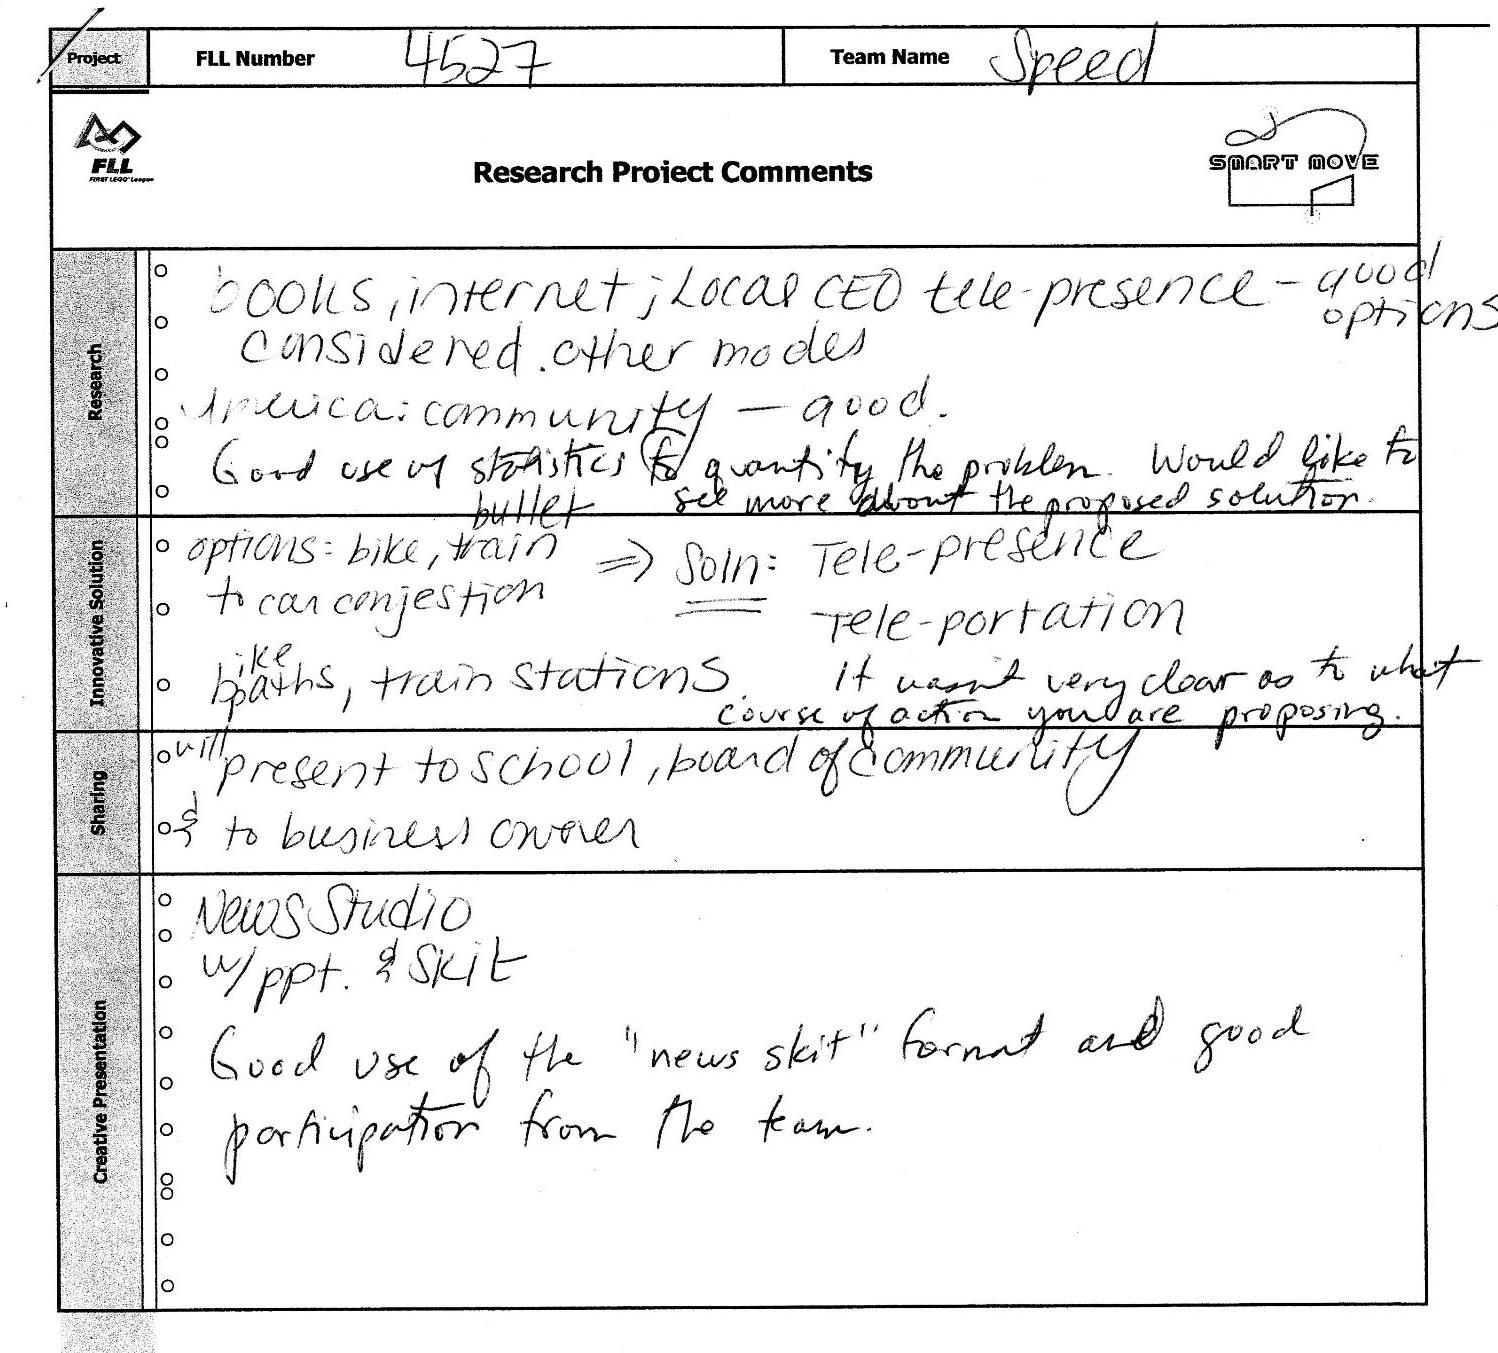 Project FLL Number 4527 Team Name Speed
FLL
FIRST LEGO League
Research Project Comments
SMART MOVE
Research
books, internet; Local CEO tele-presence - good
options
considered other modes
America: community — good.
Good use of statistics to quantify the problem. Would like to
see more about the proposed solution.
Innovative Solution
bullet
options: bike, train ⇒ Soln: Tele-presence
to car conjestion
Tele-portation
bike
paths, train stations.
It wasn't very clear as to what
course of action you are proposing.
Sharing
will present to school, board of community
& to business owner
Creative Presentation
News Studio
w/ppt. & Skit
Good use of the "news skit" format and good
participation from the team.